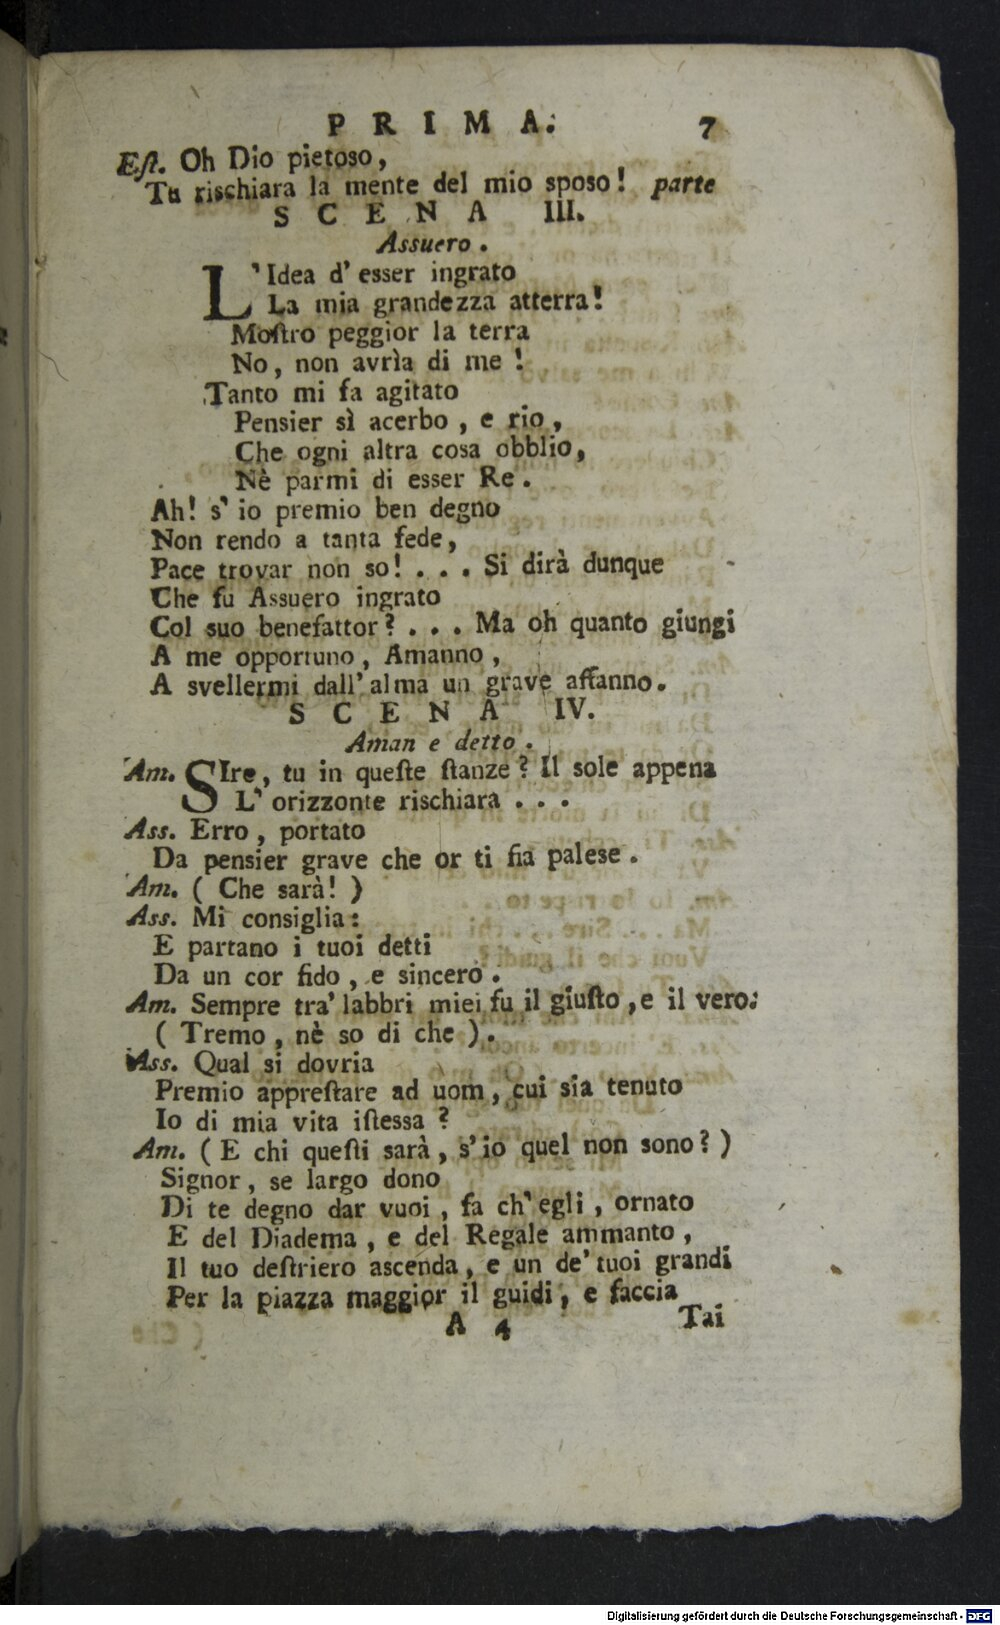 PRIMA. 7
Eſt. Oh Dio pietoso,
Tu rischiara la mente del mio sposo! parte
SCENA III.
Assuero.
L'Idea d'esser ingrato
La mia grandezza atterra!
Moſtro peggior la terra
No, non avrìa di me!
Tanto mi fa agitato
Pensier sì acerbo, e rio,
Che ogni altra cosa obblio,
Nè parmi di esser Re.
Ah! s'io premio ben degno
Non rendo a tanta fede,
Pace trovar non so! . . . Si dirà dunque
Che fu Assuero ingrato
Col suo benefattor? . . . Ma oh quanto giungi
A me opportuno, Amanno,
A svellermi dall'alma un grave affanno.
SCENA IV.
Aman e detto.
Am. SIre, tu in queſte ſtanze? Il sole appena
L'orizzonte rischiara . . .
Ass. Erro, portato
Da pensier grave che or ti fia palese.
Am. (Che sarà!)
Ass. Mi consiglia:
E partano i tuoi detti
Da un cor fido, e sincero.
Am. Sempre tra' labbri miei fu il giuſto, e il vero.
(Tremo, nè so di che).
Ass. Qual si dovria
Premio appreſtare ad uom, cui sia tenuto
Io di mia vita iſtessa?
Am. (E chi queſti sarà, s'io quel non sono?)
Signor, se largo dono
Di te degno dar vuoi, fa ch'egli, ornato
E del Diadema, e del Regale ammanto,
Il tuo deſtriero ascenda, e un de'tuoi grandi
Per la piazza maggior il guidi, e faccia
A 4 Tai
Digitalisierung gefördert durch die Deutsche Forschungsgemeinschaft - DFG